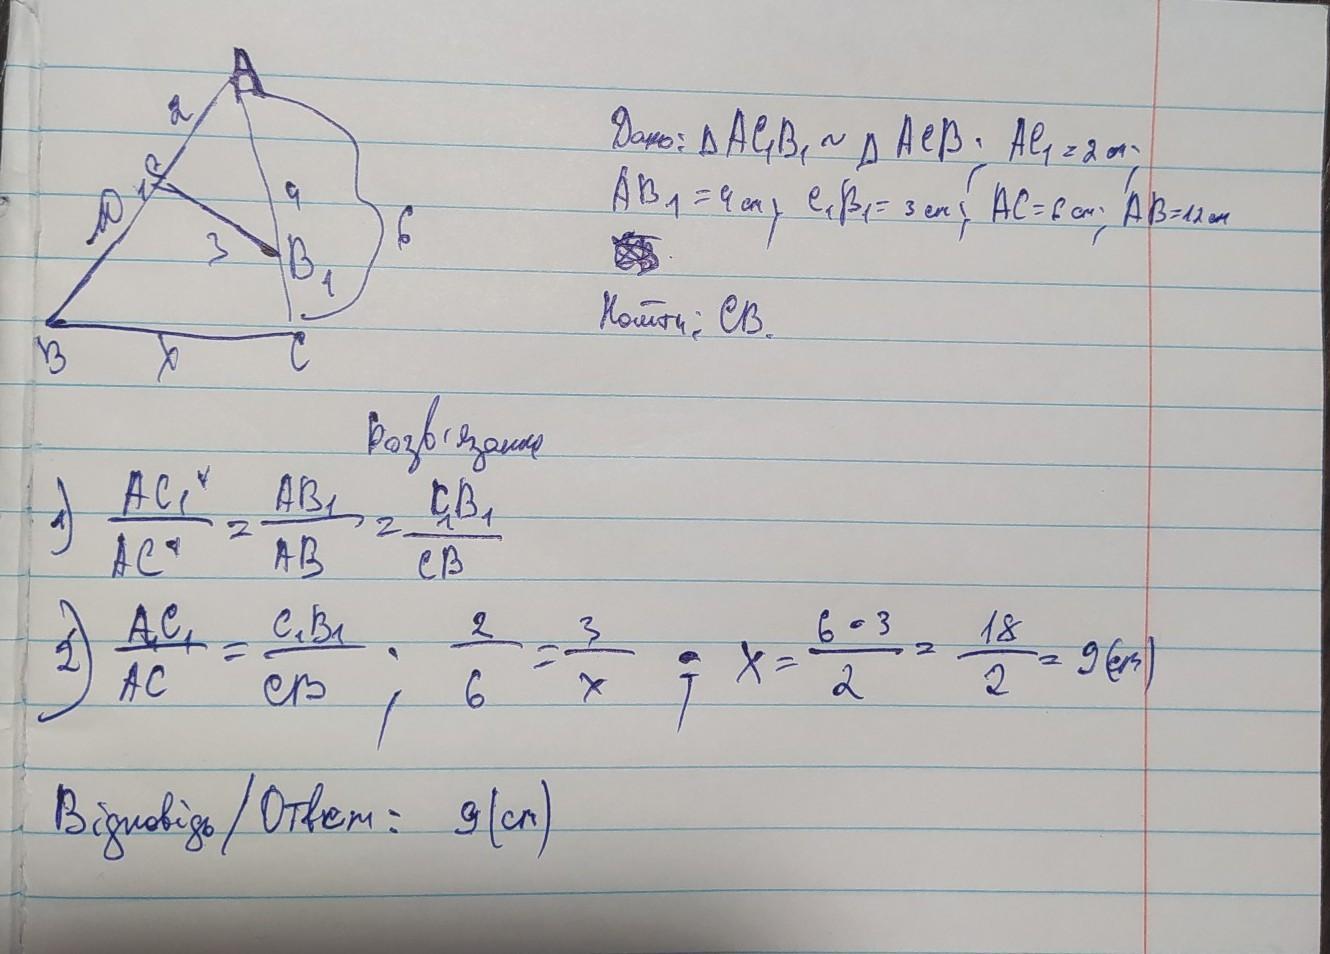 A
2
C1
10
4
3
B1
6
B
x
C
Дано: Δ AC₁B₁ ~ Δ ACB; AC₁ = 2 см;
AB₁ = 4 см; C₁B₁ = 3 см; AC = 6 см; AB = 12 см
Найти: CB.
Розв'язання
1) AC₁/AC = AB₁/AB = C₁B₁/CB
2) A₁C₁/AC = C₁B₁/CB ; 2/6 = 3/x ; x = 6·3/2 = 18/2 = 9 (см)
Відповідь/Ответ: 9 (см)